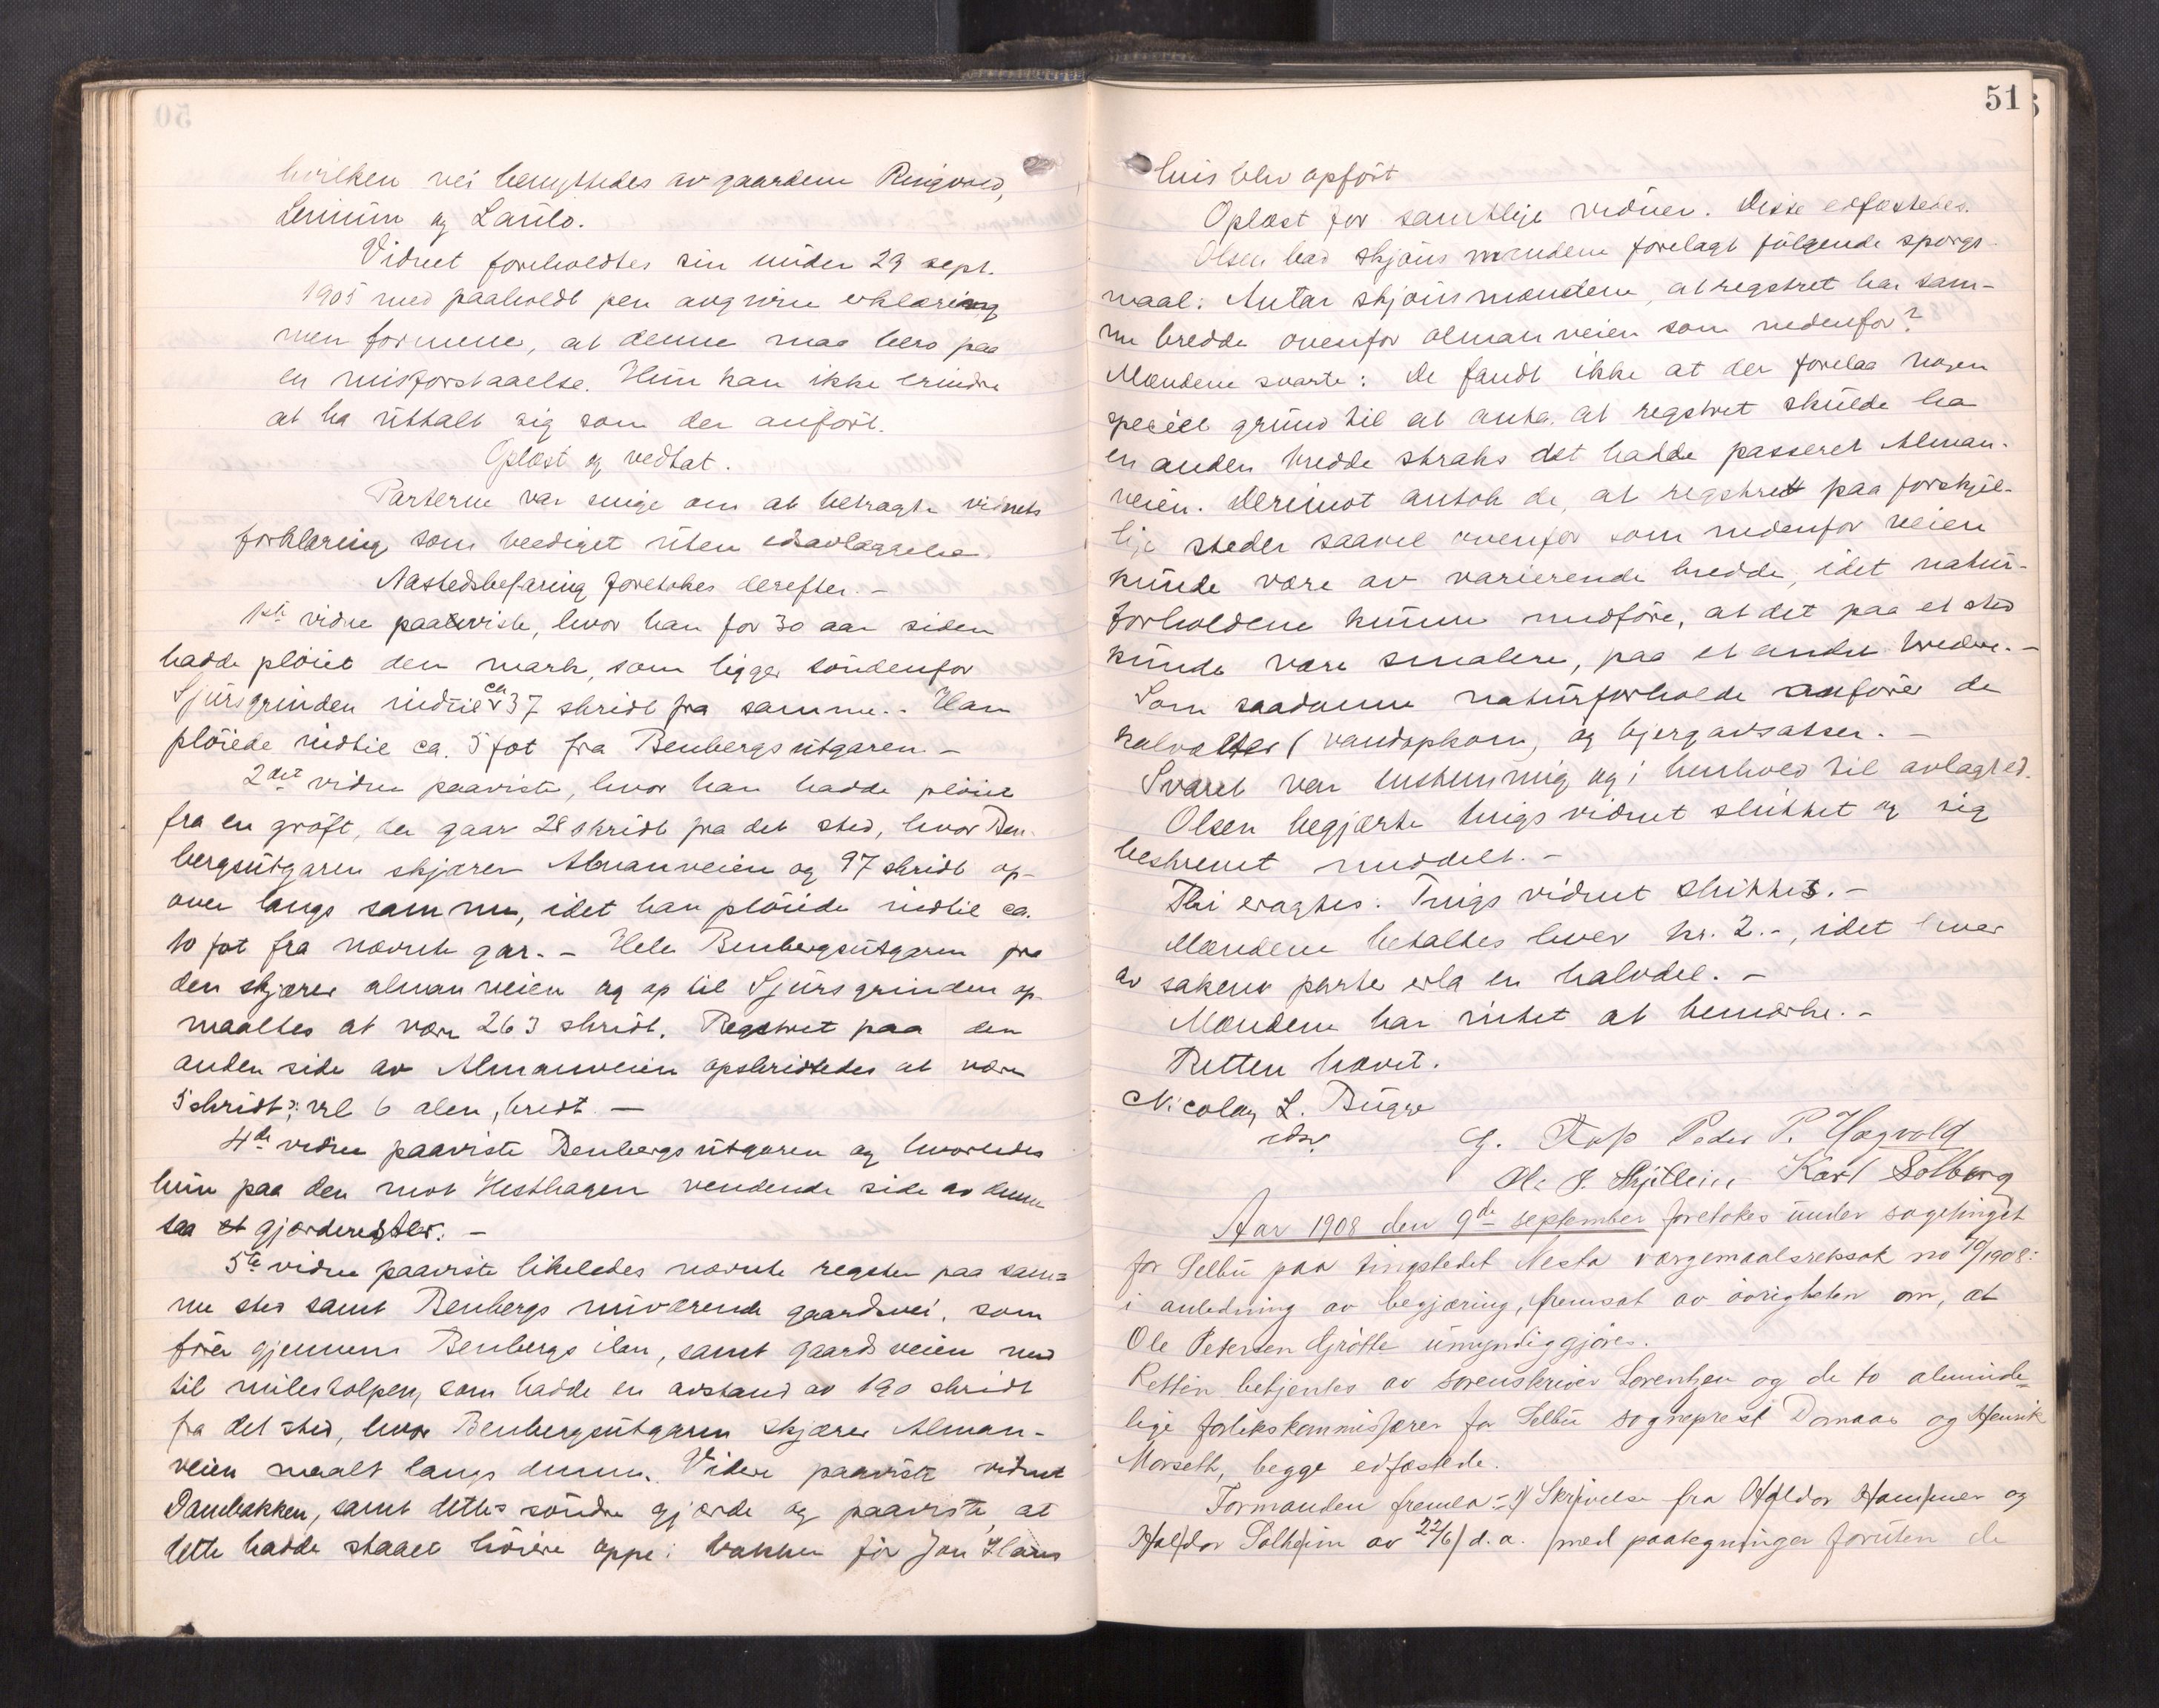 hvilken vei benyttedes av gaardene Ringvold,
Lenium og Laulo.
Vidnet foreholdtes sin under 29 sept.
1905 med paaholdt pen avgivne erklæring
men formene, at denne maa bero paa
en misforstaaelse. Hun kan ikke erindre
at ha uttalt sig som der anført.
Oplæst og vedtat.
Parterne var enige om at betragte vidnets
forklaring som beediget uten edsavlæggelse.
Aastedsbefaring foretokes derefter. -
1ste vidne paaviste, hvor han for 30 aar siden
hadde pløiet den mark, som ligger søndenfor
Sjursgrinden indtil ca 37 skridt fra samme. - Han
pløiede indtil ca. 5 fot fra Benbergsutgaren. -
2det vidne paaviste, hvor han hadde pløiet
fra en grøft, der gaar 28 skridt fra det sted, hvor Ben-
bergsutgaren skjærer Almanveien og 97 skridt op-
over langs samme, idet han pløiede indtil ca.
10 fot fra nævnte gar. - Hele Benbergsutgaren fra
den skjærer almanveien og op til Sjursgrinden op-
maaltes at være 263 skridt. Regstret paa den
anden side av Almanveien opskridtedes at være
5 skridt ɔ: vel 6 alen, bredt. -
4de vidne paaviste Benbergsutgaren og hvorledes
hun paa den mot Hesthagen vendende side av denne
saa et gjærderester. -
5te vidne paaviste likeledes nævnte regster paa sam=
me sted samt Benbergs nuværende gaardsvei, som
fører gjennem Benbergs ilen, samt gaardsveien ned
til milestolpen, som hadde en avstand av 190 skridt
fra det sted, hvor Benbergsutgaren skjærer Alman-
veien maalt langs denne. Videre paaviste vidnet
Dambakken, samt dettes søndre gjærde og paaviste, at
dette hadde staaet høiere oppe i bakken før Jon Haus
51
huis blev opført
Oplæst for samtlige vidner. Disse edfæstedes.
Olsen bad skjønsmændene forelagt følgende spørgs-
maal: Antar skjønsmændene, at regstret har sam-
me bredde ovenfor almanveien som nedenfor?
Mændene svarte: De fandt ikke at der forelaa nogen
speciel grund til at anta, at regstret skulde ha
en anden bredde straks det hadde passeret Alman-
veien. Derimot antok de, at regstret paa forskjel-
lige steder saavel ovenfor som nedenfor veien
kunde være av varierende bredde, idet natur-
forholdene kunne medføre, at det paa et sted
kunde være smalere, paa et andet bredere. -
Som saadanne naturforholde anfører de
( vandopkom, og bjergavsatser. -
Svaret var enstemmig og i henhold til avlagt ed.
Olsen begjærte tingsvidnet sluttet og sig
beskrevet meddelt. -
Thi eragtes: Tingsvidnet sluttet. -
Mændene betaltes hver kr. 2.-, idet hver
av sakens parter erla en halvdel. -
Mændene har intet at bemærke. -
Retten hævet.
Nicolay L. Bugge
edsv.
G. Rass Peder P. Hagvold
Ole J. Karl Solberg
Aar 1908 den 9de september foretokes under sagetinget
for Selbu paa tingstedet Nesta værgemaalsretssak no 10/1908:
i anledning av begjæring, fremsat av øvrigheten om, at
Ole Petersen Grøtte umyndiggjøres.
Retten betjentes av sorenskriver Lorentzen og de to alminde=
lige forlikskommissærer for Selbu sogneprest Domaas og Henrik
Morseth, begge edfæstede.
Formanden fremla: 1) Skrivelse fra Haldor Hammer og
Haldor Solheim av 22/6 d.a. med paategninger foruten de